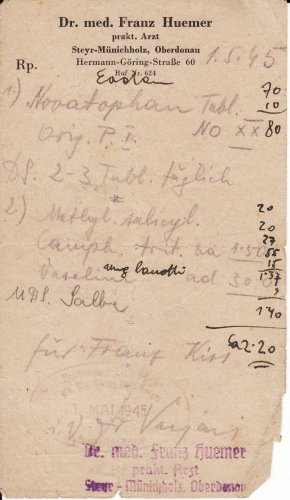 Dr. med. Franz Huemer
prakt. Arzt
Steyr-Münichholz, Oberdonau
Hermann-Göring-Straße 60
Ruf Nr. 624
1.5.45
Rp.
1) Novatophan Tabl. 70
10
Orig. P. I. No XX 80
DS. 2-3 Tabl. täglich
2) Methyl. salicyl. 20
20
Camph. trit. 27
55
15
Vaselin ad 30.0 1.37
MDS. Salbe
1.40
2.20
für Franz Kiss
MAI 1945
i. V. Dr.
Dr. med. Franz Huemer
prakt. Arzt
Steyr - Münichholz, Oberdonau